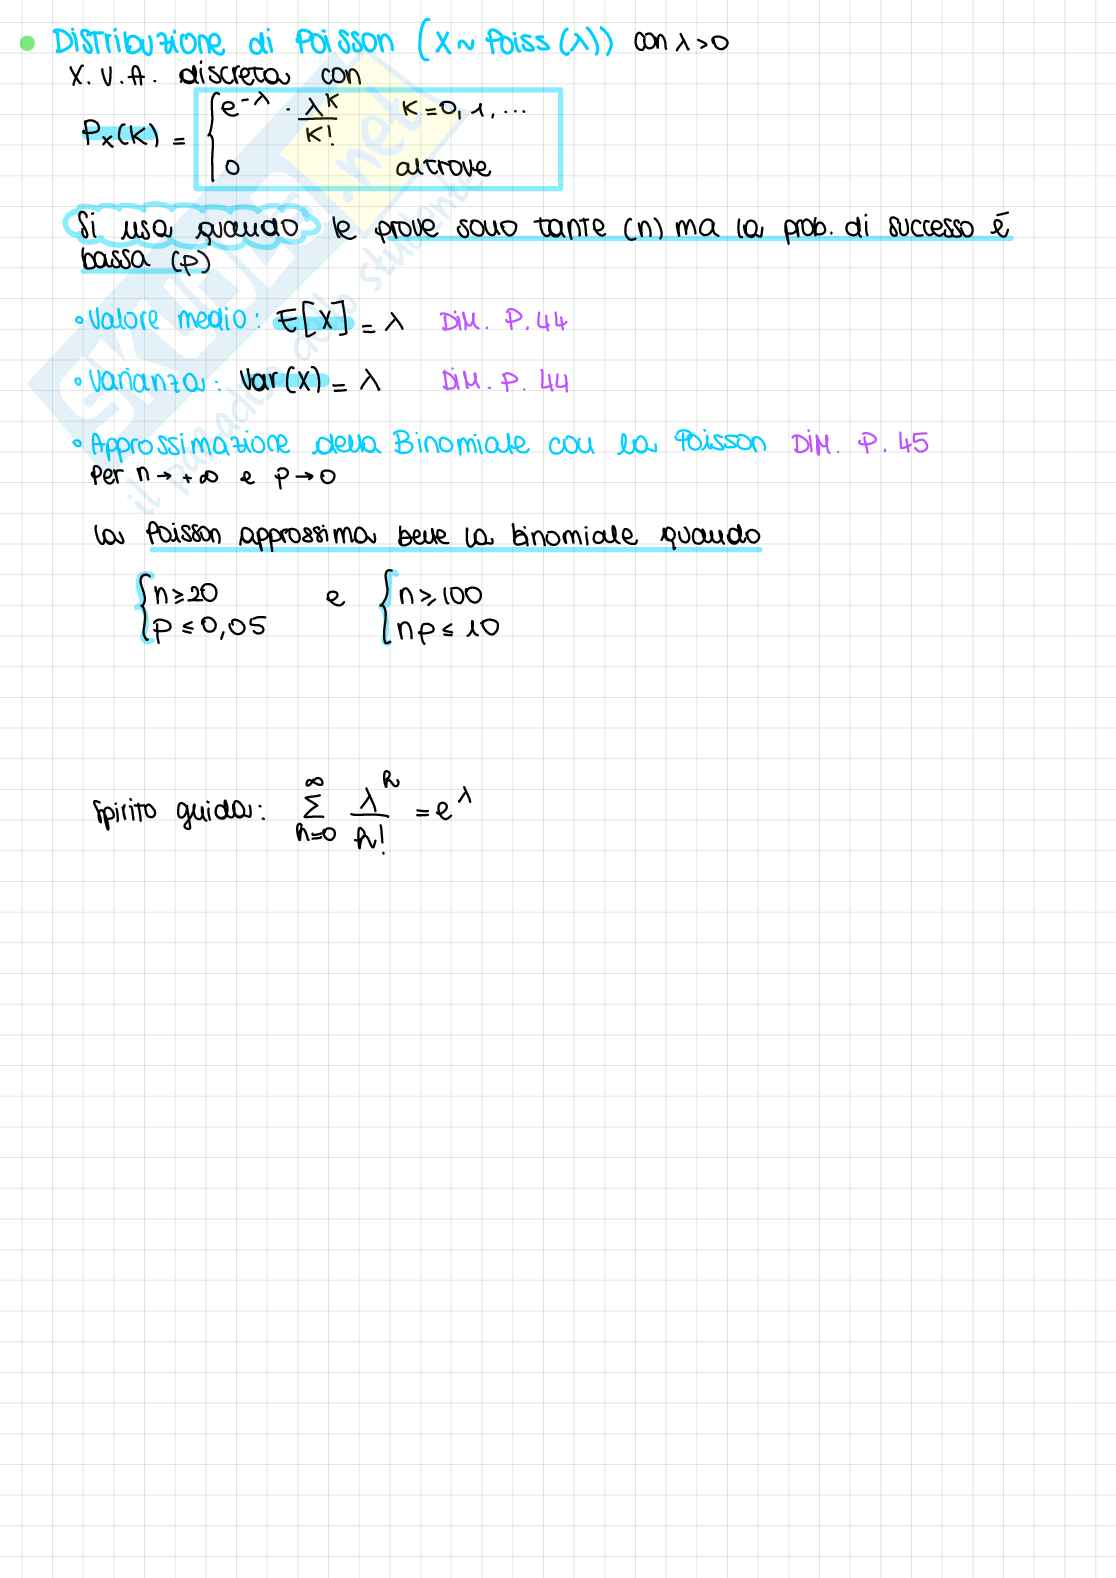 • Distribuzione di Poisson (X ~ Poiss(λ)) con λ>0
X. V.A. discreta con
Pₓ(K) = { e^-λ · λ^K / K!   K=0, 1, ...
0   altrove
Si usa quando le prove sono tante (n) ma la prob. di successo è
bassa (p)
• Valore medio: E[X] = λ DIM. P. 44
• Varianza: Var(X) = λ DIM. P. 44
• Approssimazione della Binomiale con la Poisson DIM. P. 45
Per n → +∞ e p → 0
la Poisson approssima bene la binomiale quando
{ n ≥ 20 e { n ≥ 100
p ≤ 0,05   np ≤ 10
Spirito guida: ∑_{h=0}^{∞} λ^h / h! = e^λ
SKUOLA.net
il paradiso dello studente